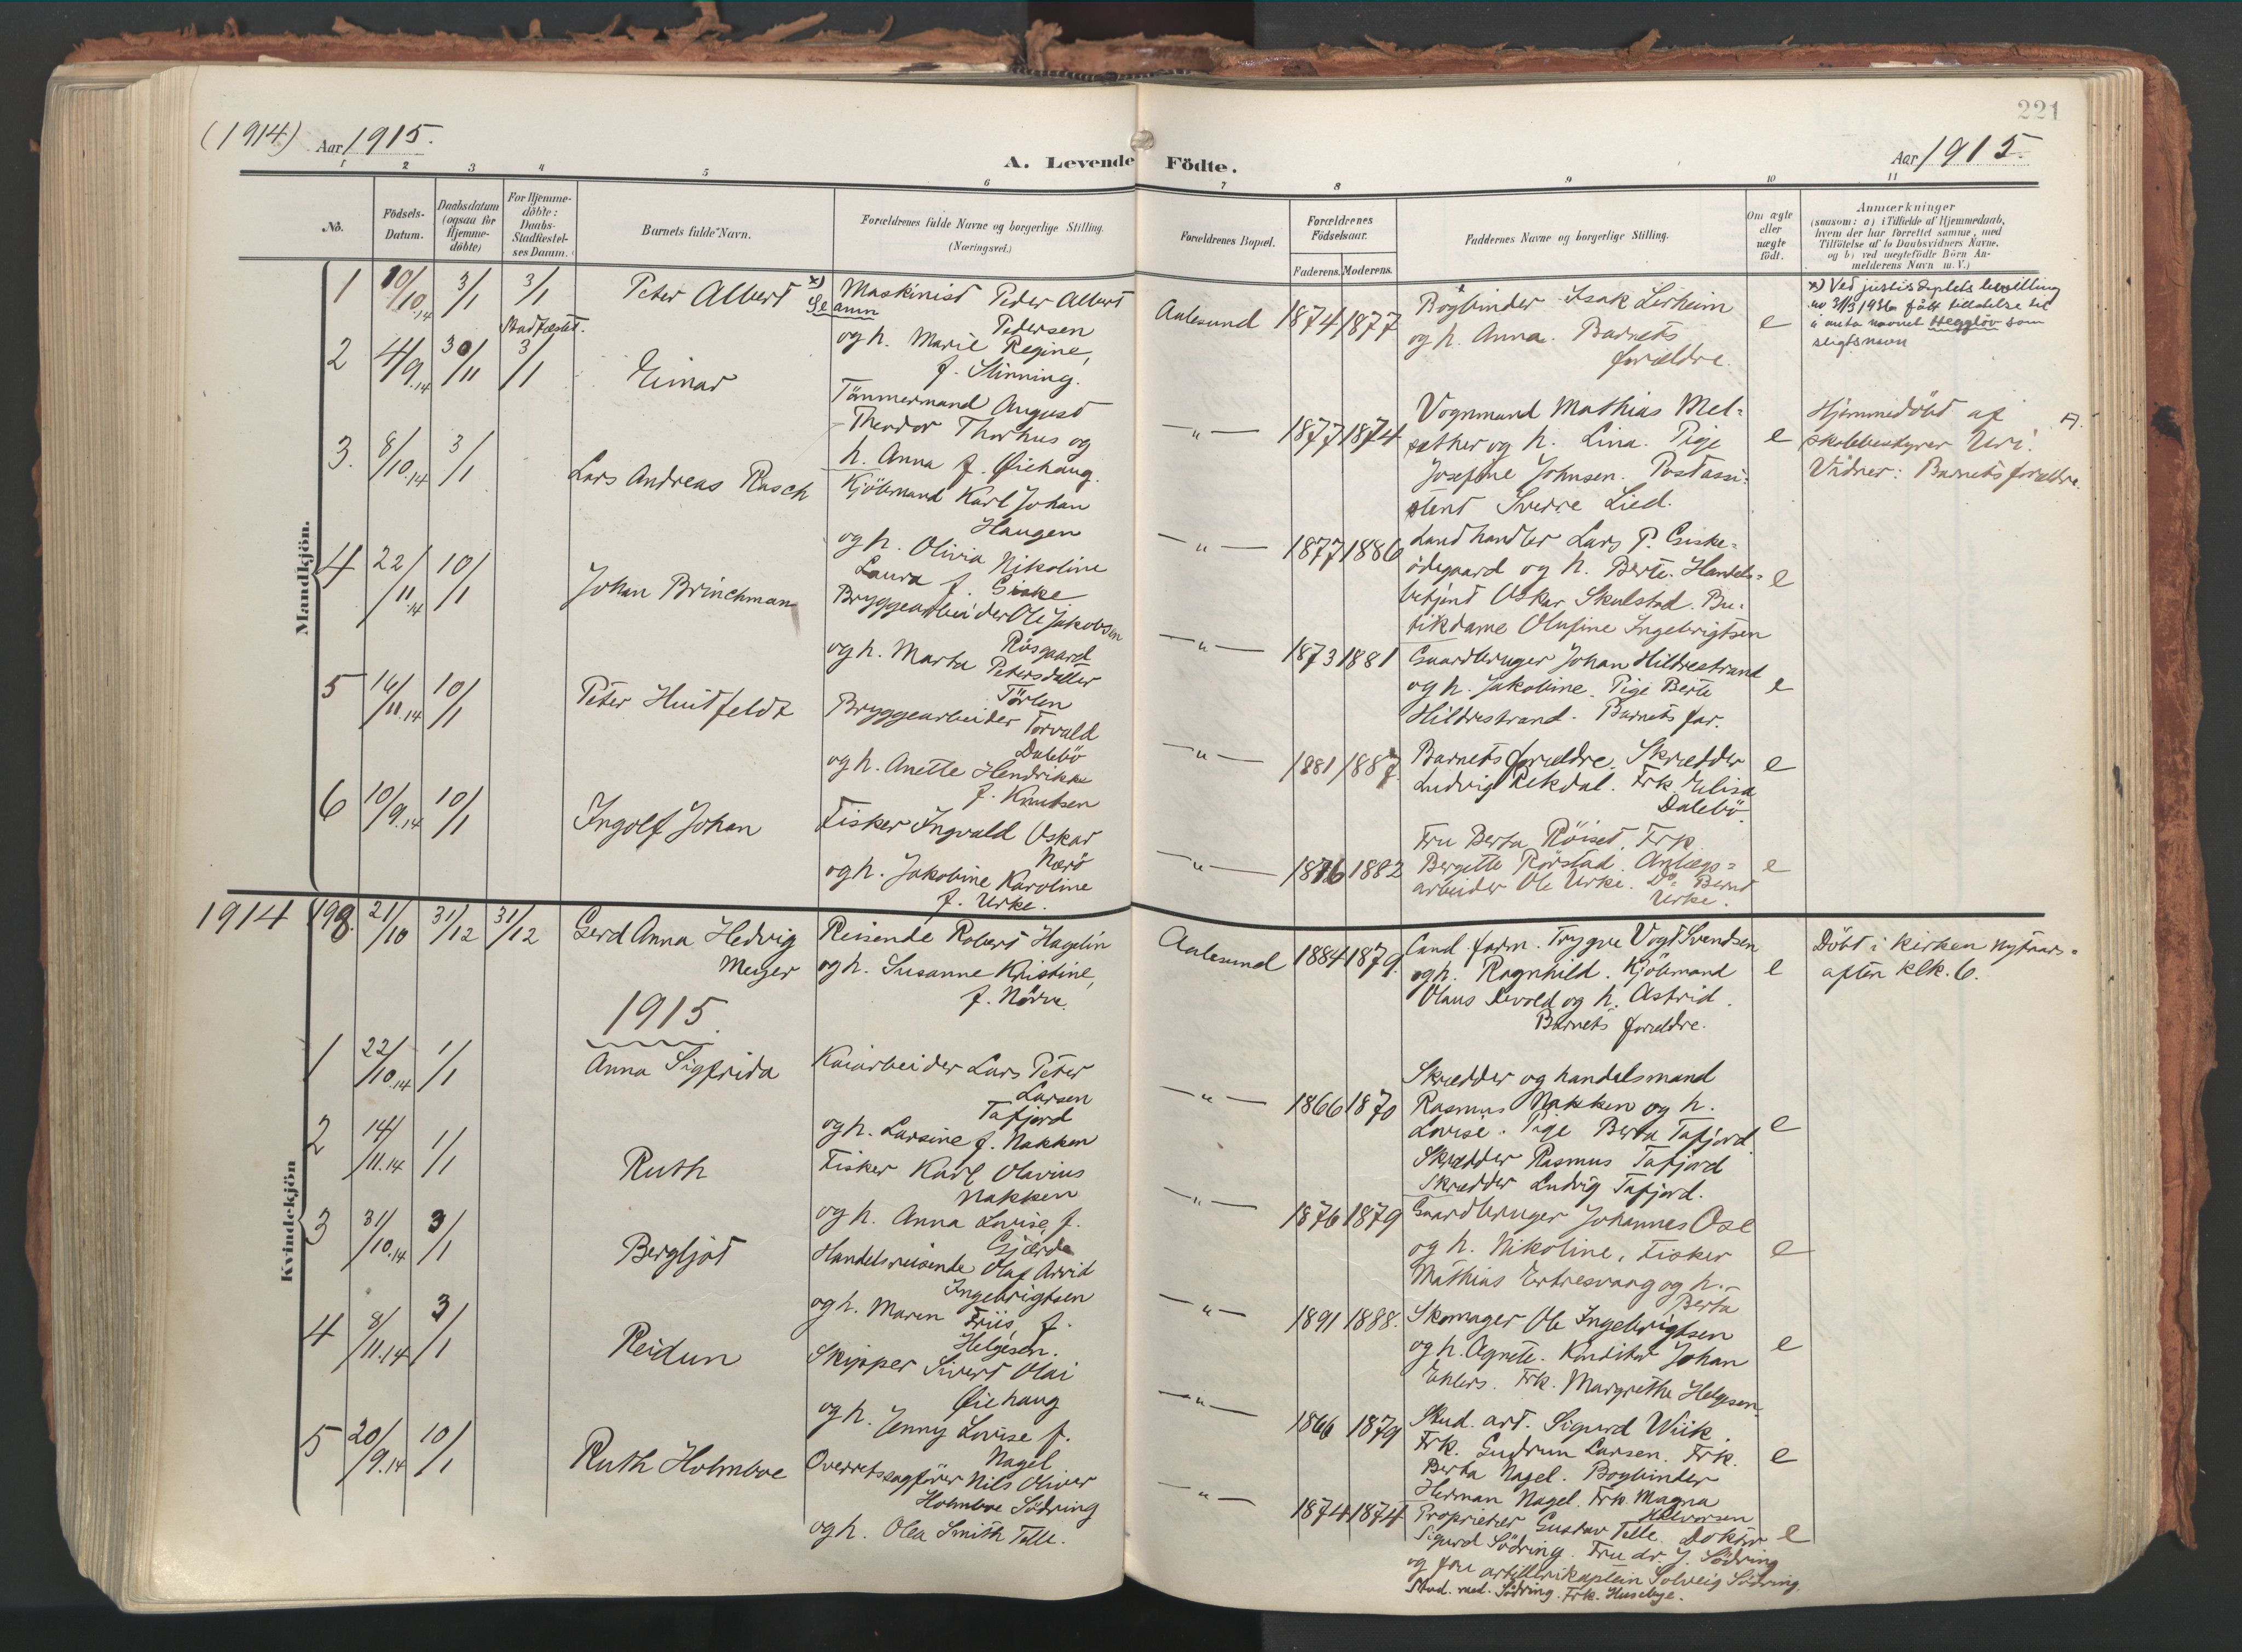 221
(1914) Aar 1915.
A. Levende Födte.
Aar 1915.
1 2 3 4 5 6 7 8 9 10 11
No.
Födsels-
Datum.
Daabsdatum
(ogsaa for
Hjemme-
döbte)
For Hjemme-
döbte:
Daabs-
Stadfæstel-
ses Datum.
Barnets fulde Navn.
Forældrenes fulde Navne og borgerlige Stilling.
(Næringsvei.)
Forældrenes Bopæl.
Forældrenes
Födselsaar.
Faderens. Moderens.
Faddernes Navne og borgerlige Stilling.
Om ægte
eller
uægte
födt.
Anmærkninger
(saasom: a) i Tilfælde af Hjemmedaab,
hvem der har forrettet samme, med
Tilföielse af to Daabsvidners Navne,
og b) ved uægtefödte Börn An-
melderens Navn m. V.)
Mandkjön.
1 10/10.14 3/1 3/1
Stadfæstet.
Peter Albert x)
Se anm
Maskinist Peder Albert
Pedersen
og h. Marie Regine,
f. Slinning.
Aalesund 1874 1877
Bogbinder Isak Lerheim
og h. Anna. Barnets
forældre.
e
x) Ved justisdeptets bevilling
av 31/3 1936 fått tillatelse til
å anta navnet Heggløv som
slegtsnavn
2 4/9.14 30/11 3/1
Einar
Tömmermand August
Theodor Thorhus og
h. Anna f. Øiehaug.
— " — 1877 1874
Vognmand Mathias Mel=
sæther og h. Lina. Pige
Josefine Johnsen. Postassi=
stent Sverre Lied.
e
Hjemmedöbt af
skolebestyrer Uri.
Vidner: Barnets forældre.
3. 8/10.14 3/1
Lars Andreas Rasch
Kjöbmand Karl Johan
Haugen
og h. Olivia Nikoline
Laura f. Giske
— " — 1877 1886
Landhandler Lars P. Giske=
ödegaard og h. Berte. Handels=
betjent Oskar Skulstad. Bu=
tikdame Olufine Ingebrigtsen
e
4 22/11.14 10/1
Johan Brinchmann
Bryggearbeider Ole Jakobsen
Rösgaard
og h. Marta Petersdatter
Törlen
— " — 1873 1881
Gaardbruger Johan Hildrestrand
og h. Jakobine. Pige Berte
Hildrestrand. Barnets far.
e
5 16/11.14 10/1
Peter Huitfeldt
Bryggearbeider Torvald
Dalebö
og h. Anette Hendrikke
f. Knutsen
— " — 1881 1887
Barnets forældre. Skrædder
Ludvig Rekdal. Frk. Elisa
Dalebö.
e
6 10/9.14 10/1
Ingolf Johan
Fisker Ingvald Oskar
Nærö
og h. Jakobine Karoline
f. Urke.
— " — 1876 1882
Fru Berta Röiset. Frk.
Bergitte Rörstad. Anlægs=
arbeider Ole Urke. Do Bernt
Urke.
e
Kvindekjön
1914 198. 21/10 31/12 31/12
Gerd Anna Hedvig
Meyer
Reisende Robert Hagelin
og h. Susanne Kristine,
f. Nörve.
Aalesund 1884 1879.
Cand. farm. Trygve Vogt Svendsen
og h. Ragnhild. Kjöbmand
Olaus Devold og h. Astrid.
Barnets forældre.
e
Döbt i kirken nytaars=
aften klk. 6.
1915.
1 22/10.14 1/1
Anna Sigfrida
Kaiarbeider Lars Peter
Larsen
Tafjord
og h. Larsine f. Nakken
— " — 1866 1870
Skrædder og handelsmand
Rasmus Nakken og h.
Lovise. Pige Berta Tafjord.
Skrædder Rasmus Tafjord
Skrædder Ludvig Tafjord.
e
2 14/11.14 1/1
Ruth
Fisker Karl Olavius
Nakken
og h. Anna Lovise, f.
Gjærde
— " — 1876 1879
Gaardbruger Johannes Ose
og h. Nikoline, Fisker
Mathias Ertresvaag og h.
Berta
e
3 31/10.14 3/1
Bergljot
Handelsreisende Olaf Arvid
Ingebrigtsen
og h. Maren Friis, f.
Helgesen.
— " — 1891 1888.
Skomager Ole Ingebrigtsen
og h. Agnete. Konditor Johan
Ehlers. Frk. Margrethe Helgesen.
e
4 8/11.14 3/1
Reidun
Skipper Sivert Olai
Øiehaug
og h. Jenny Lovise f.
Nagel
— " — 1866 1879
Stud. art. Sigurd Wiik.
Frk. Gudrun Larsen. Frk.
Berta Nagel. Bogbinder
Herman Nagel. Frk. Magna
Halvorsen
e
5 20/9.14 10/1
Ruth Holmboe
Overretssagförer Nils Oliver
Holmboe Södring
og h. Olea Smith Telle.
— " — 1874 1874
Proprietær Gustav Telle. Doktor
Sigurd Södring. Fru dr. J. Södring
og fru artillerikaptein Solveig Södring.
Stud. med. Södring. Frk. Husebye.
e